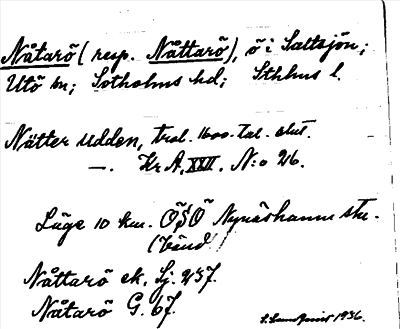 Nåtarö (resp. Nåttarö), ö i Saltsjön;
Utö sn; Sotholms hd; Sthlms l.
Nåtter udden, trol. 1600-tal. slut.
—. Kr.A, XXII. N:o 26.
Läge 10 km. ÖSÖ Nynäshamns stn.
(Vänd!)
Nåttarö ek. Sj. 237.
Nåtarö G. 67.
1936.